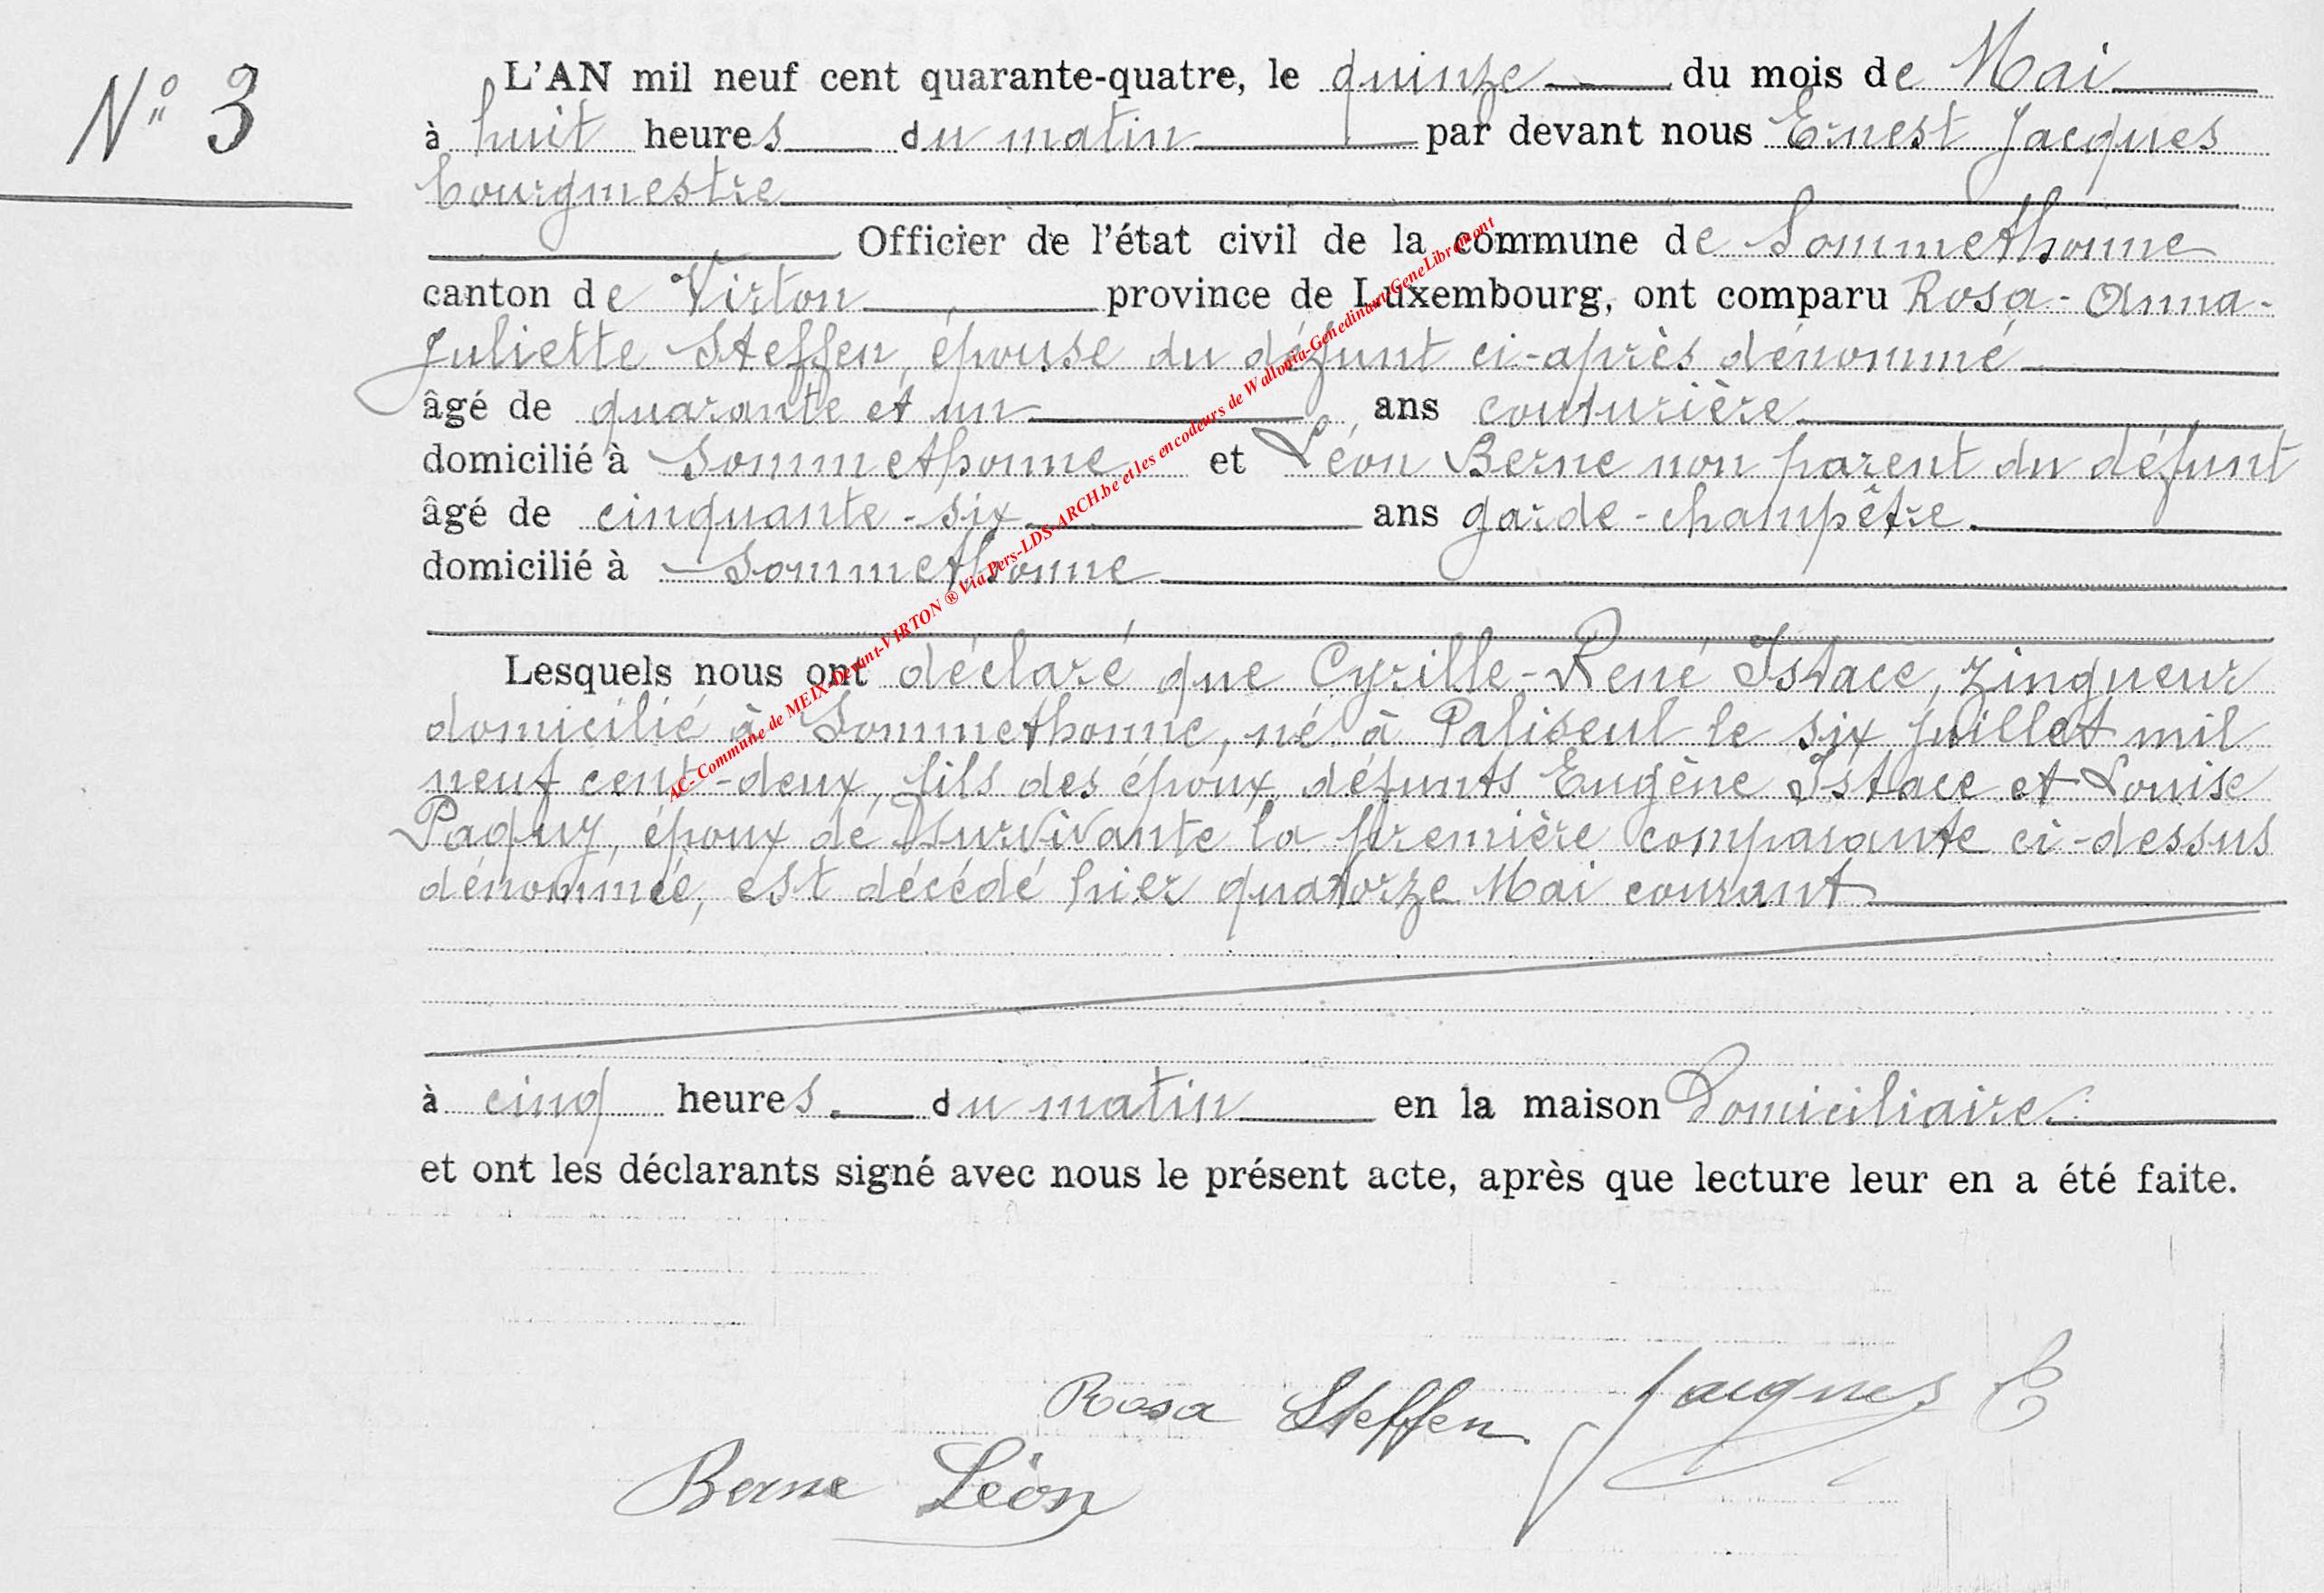 N° 3
L'AN mil neuf cent quarante-quatre, le quinze du mois de Mai
à huit heures du matin par devant nous Ernest Jacques
bourgmestre
Officier de l'état civil de la commune de Sommethonne
canton de Virton province de Luxembourg, ont comparu Rosa-Anna-
Juliette Steffen, épouse du défunt ci-après dénommé
âgé de quarante et un ans couturière
domicilié à Sommethonne et Léon Berne non parent du défunt
âgé de cinquante-six ans garde-champêtre
domicilié à Sommethonne
Lesquels nous ont déclaré que Cyrille-René Istace, zingueur
domicilié à Sommethonne, né à Paliseul le six juillet mil
neuf cent-deux, fils des époux défunts Eugène Istace et Louise
Paquy, époux de survivante la première comparante ci-dessus
dénommée, est décédé hier quatorze Mai courant
à cinq heures du matin en la maison Domiciliaire
et ont les déclarants signé avec nous le présent acte, après que lecture leur en a été faite.
Rosa Steffen Jacques E
Berne Léon
AC- Commune de MEIX-Devant-VIRTON ® Via Pers-LDS-ARCH.be et les encodeurs de Wallonia-Genedinant-GeneLibramont